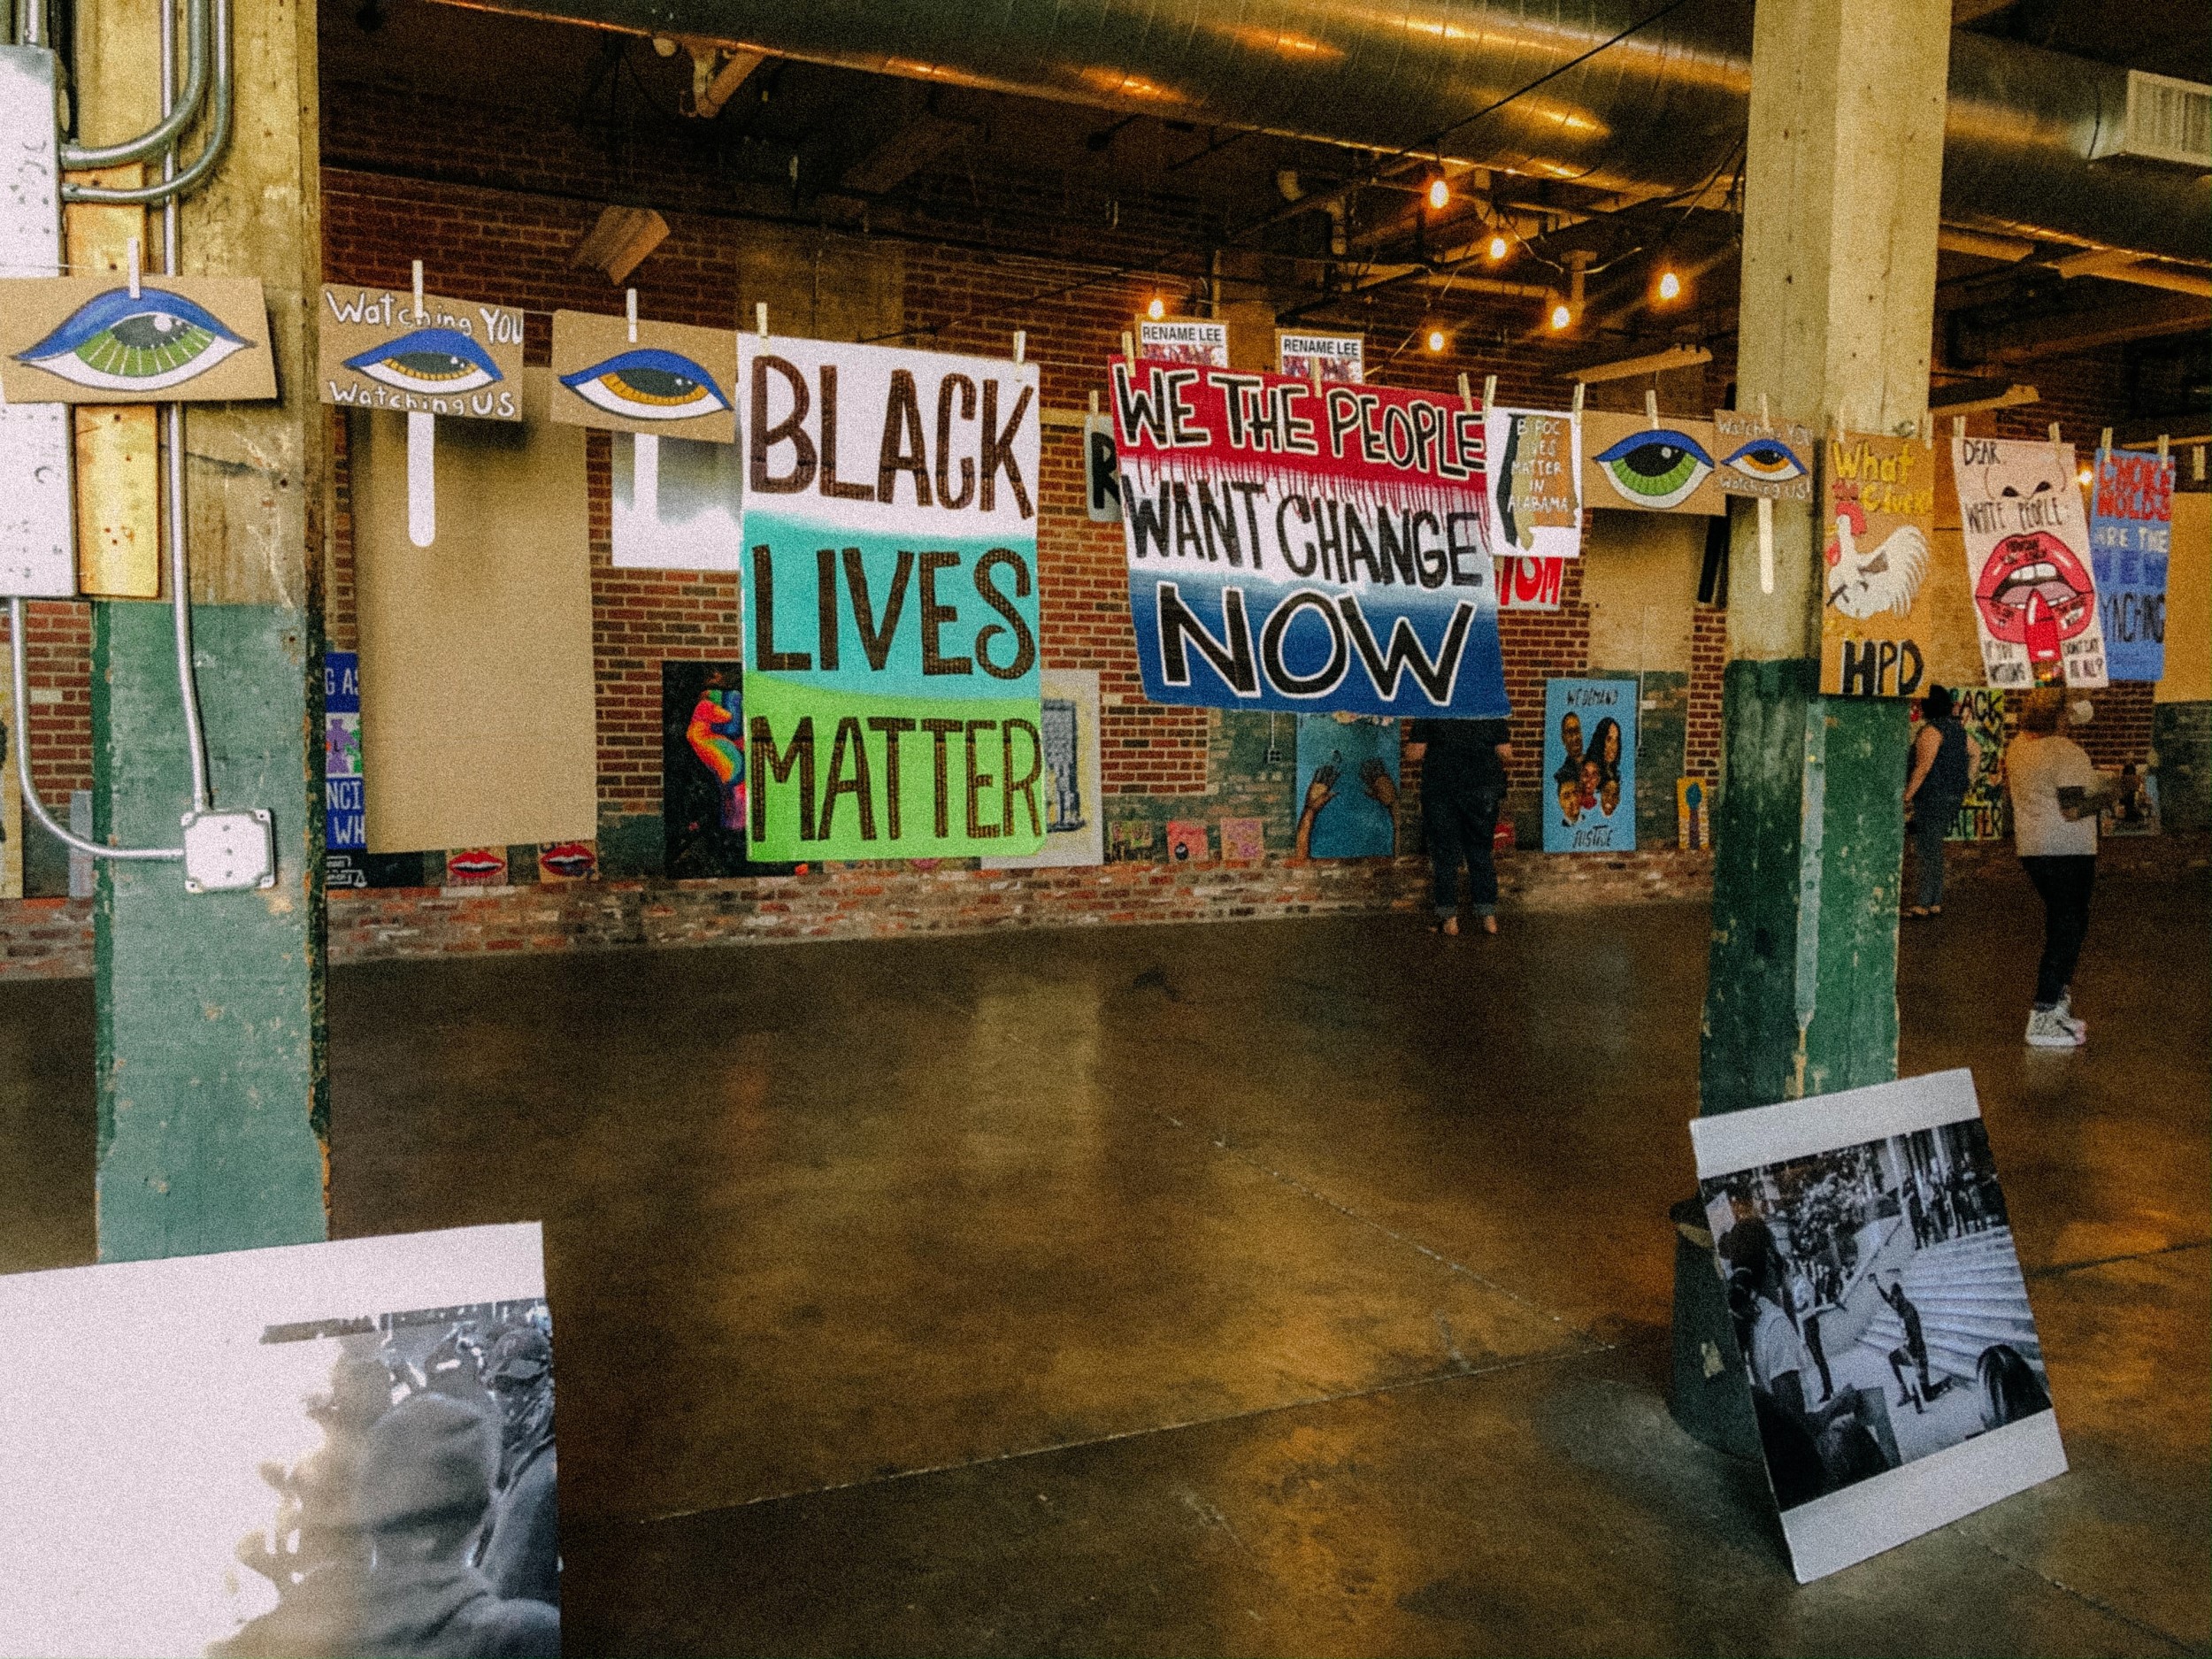 Watching YOU
Watching US
BLACK
LIVES
MATTER
RENAME LEE
RENAME LEE
WE THE PEOPLE
WANT CHANGE
NOW
BIPOC
LIVES
MATTER
IN
ALABAMA
Watching YOU
Watching US!
What
a Cluck!
HPD
DEAR
WHITE PEOPLE:
CHOKE
HOLDS
ARE THE
NEW
LYNCHING
G AS
NCI
WH
WE DEMAND
JUSTICE